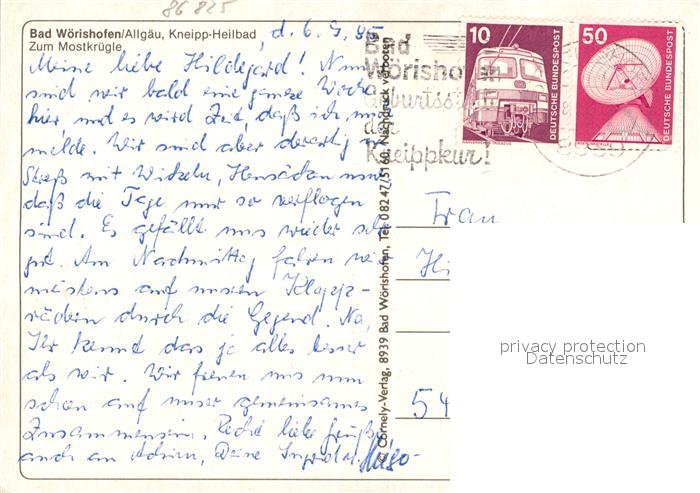 86 825
Bad Wörishofen/Allgäu, Kneipp-Heilbad
Zum Mostkrügle
, d. 6. 9. 85
Meine liebe Hildegard! Nun
sind wir bald eine ganze Woche
hier und es wird Zeit, daß ich mich
melde. Wir sind aber derartig im
Streß mit Wickeln, Heusäcken usw.
daß die Tage nur so verflogen
sind. Es gefällt uns wieder sehr
gut. Am Nachmittag fahren wir
meistens auf unseren Klapp-
rädern durch die Gegend. Na,
Ihr kennt das ja alles besser
als wir. Wir freuen uns nun
schon auf unser gemeinsames
Zusammensein. Recht liebe Grüße
auch an Achim, Deine Ingrid u. Hugo
© Cornely-Verlag, 8939 Bad Wörishofen, Tel. 0 82 47/51 60, Nachdruck verboten
Bad
Wörishofen
Geburtsst
der
Kneippkur!
10
DEUTSCHE BUNDESPOST
50
DEUTSCHE BUNDESPOST
Frau
Hi
54
privacy protection
Datenschutz